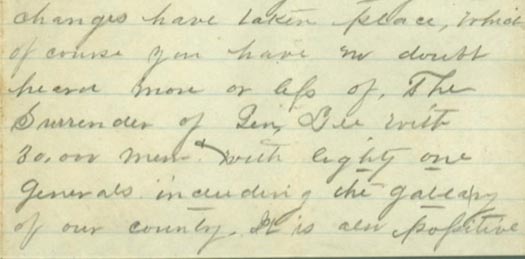 changes have taken place, which
of course you have no doubt
heard more or less of. The
Surrender of Gen, Lee with
30,000 men & with eighty one
Generals including the
of our county. It is also positive